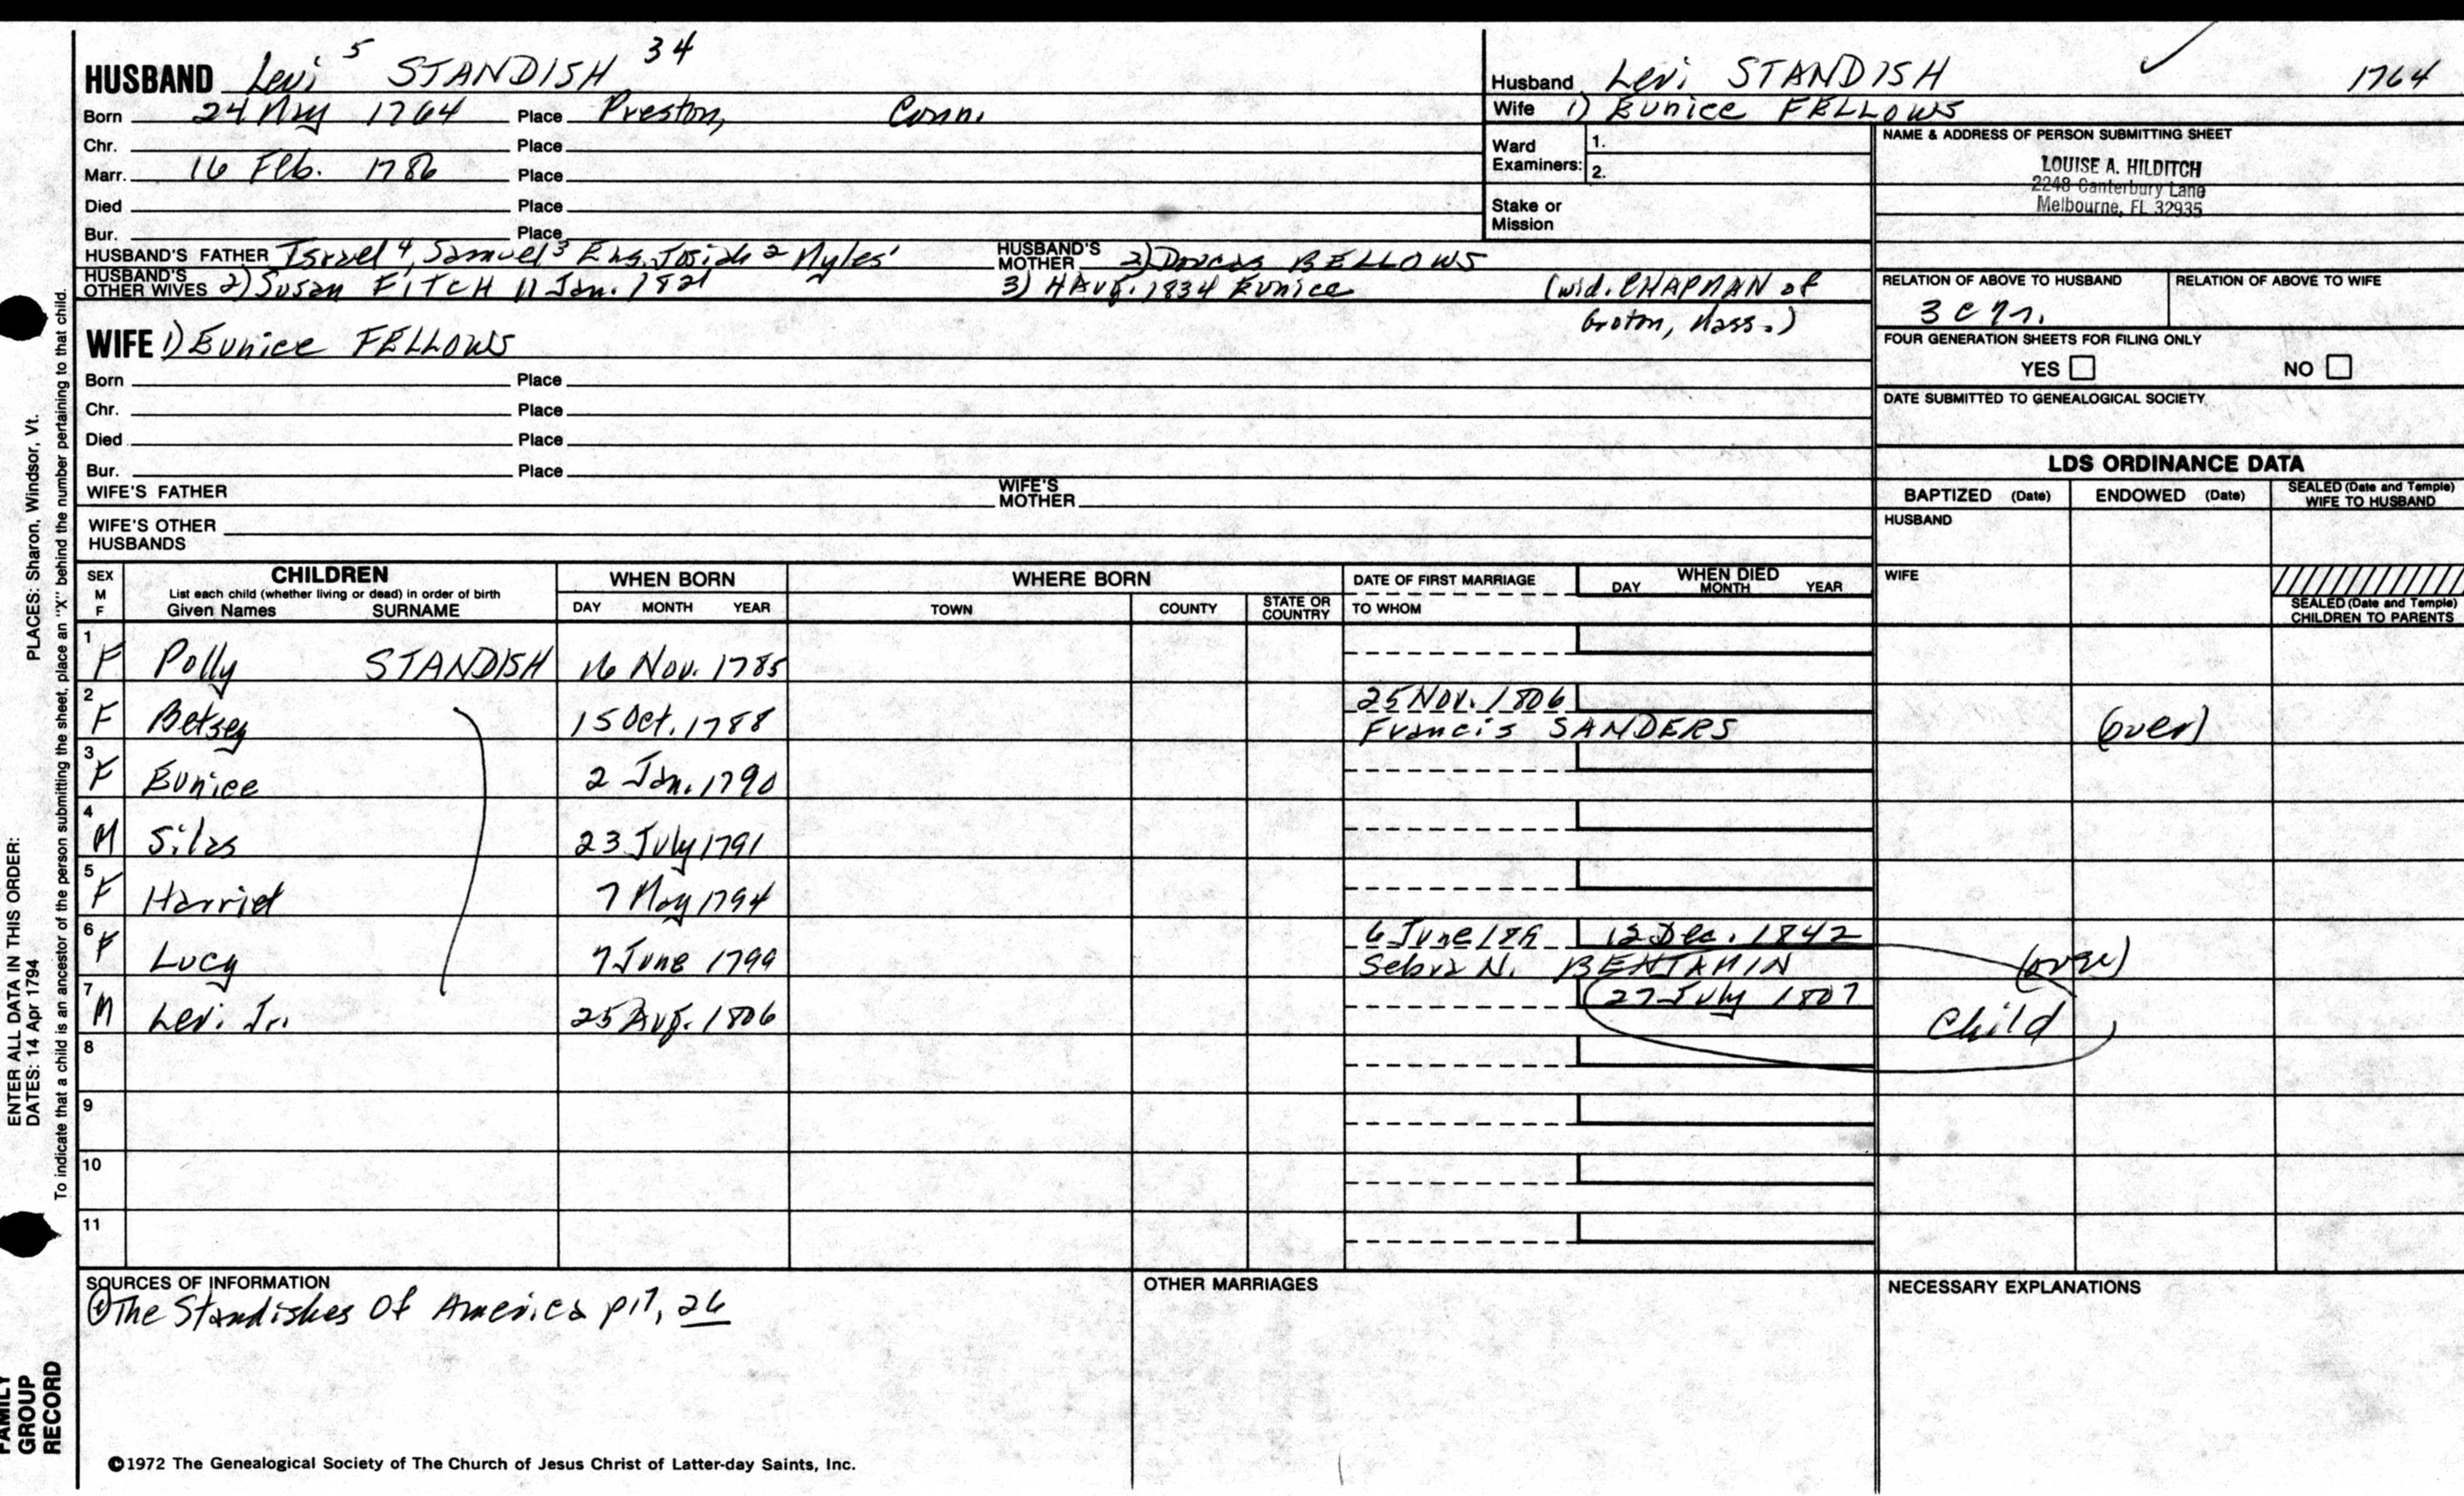 HUSBAND Levi 5 STANDISH 34
Born 24 May 1764 Place Preston, Conn.
Chr. Place
Marr. 16 Feb. 1786 Place
Died Place
Bur. Place
HUSBAND'S FATHER Israel 4, Samuel 3 Ens. Josiah 2 Myles 1 HUSBAND'S MOTHER 2) Dorcas BELLOWS
HUSBAND'S OTHER WIVES 2) Susan FITCH 11 Jan. 1821 3) Aug. 1834 Eunice (wid. CHAPMAN of
Groton, Mass.)
WIFE 1) Eunice FELLOWS
Born Place
Chr. Place
Died Place
Bur. Place
WIFE'S FATHER WIFE'S MOTHER
WIFE'S OTHER HUSBANDS
Husband Levi STANDISH 1764
Wife 1) Eunice FELLOWS
Ward Examiners: 1.
2.
Stake or Mission
NAME & ADDRESS OF PERSON SUBMITTING SHEET
LOUISE A. HILDITCH
2248 Canterbury Lane
Melbourne, FL 32935
RELATION OF ABOVE TO HUSBAND RELATION OF ABOVE TO WIFE
FOUR GENERATION SHEETS FOR FILING ONLY
YES NO
DATE SUBMITTED TO GENEALOGICAL SOCIETY
LDS ORDINANCE DATA
BAPTIZED (Date) ENDOWED (Date) SEALED (Date and Temple) WIFE TO HUSBAND
HUSBAND
WIFE
SEALED (Date and Temple) CHILDREN TO PARENTS
SEX M F CHILDREN WHEN BORN WHERE BORN DATE OF FIRST MARRIAGE WHEN DIED
List each child (whether living or dead) in order of birth DAY MONTH YEAR
Given Names SURNAME DAY MONTH YEAR TOWN COUNTY STATE OR COUNTRY TO WHOM
1 F Polly STANDISH 16 Nov. 1785
2 F Betsey 15 Oct. 1788 25 Nov. 1806 Francis SANDERS (over)
3 F Eunice 2 Jan. 1790
4 M Silas 23 July 1791
5 F Harriet 7 May 1794
6 F Lucy 7 June 1799 6 June 12 Dec. 1842 N. BENJAMIN (over)
7 M Levi Jr. 25 Aug. 1806 27 July 1807 Child
8
9
10
11
SOURCES OF INFORMATION
The Standishes Of America p17, 26
OTHER MARRIAGES
NECESSARY EXPLANATIONS
©1972 The Genealogical Society of The Church of Jesus Christ of Latter-day Saints, Inc.
FAMILY GROUP RECORD
ENTER ALL DATA IN THIS ORDER:
DATES: 14 Apr 1794
PLACES: Sharon, Windsor, Vt.
To indicate that a child is an ancestor of the person submitting the sheet, place an "X" behind the number pertaining to that child.